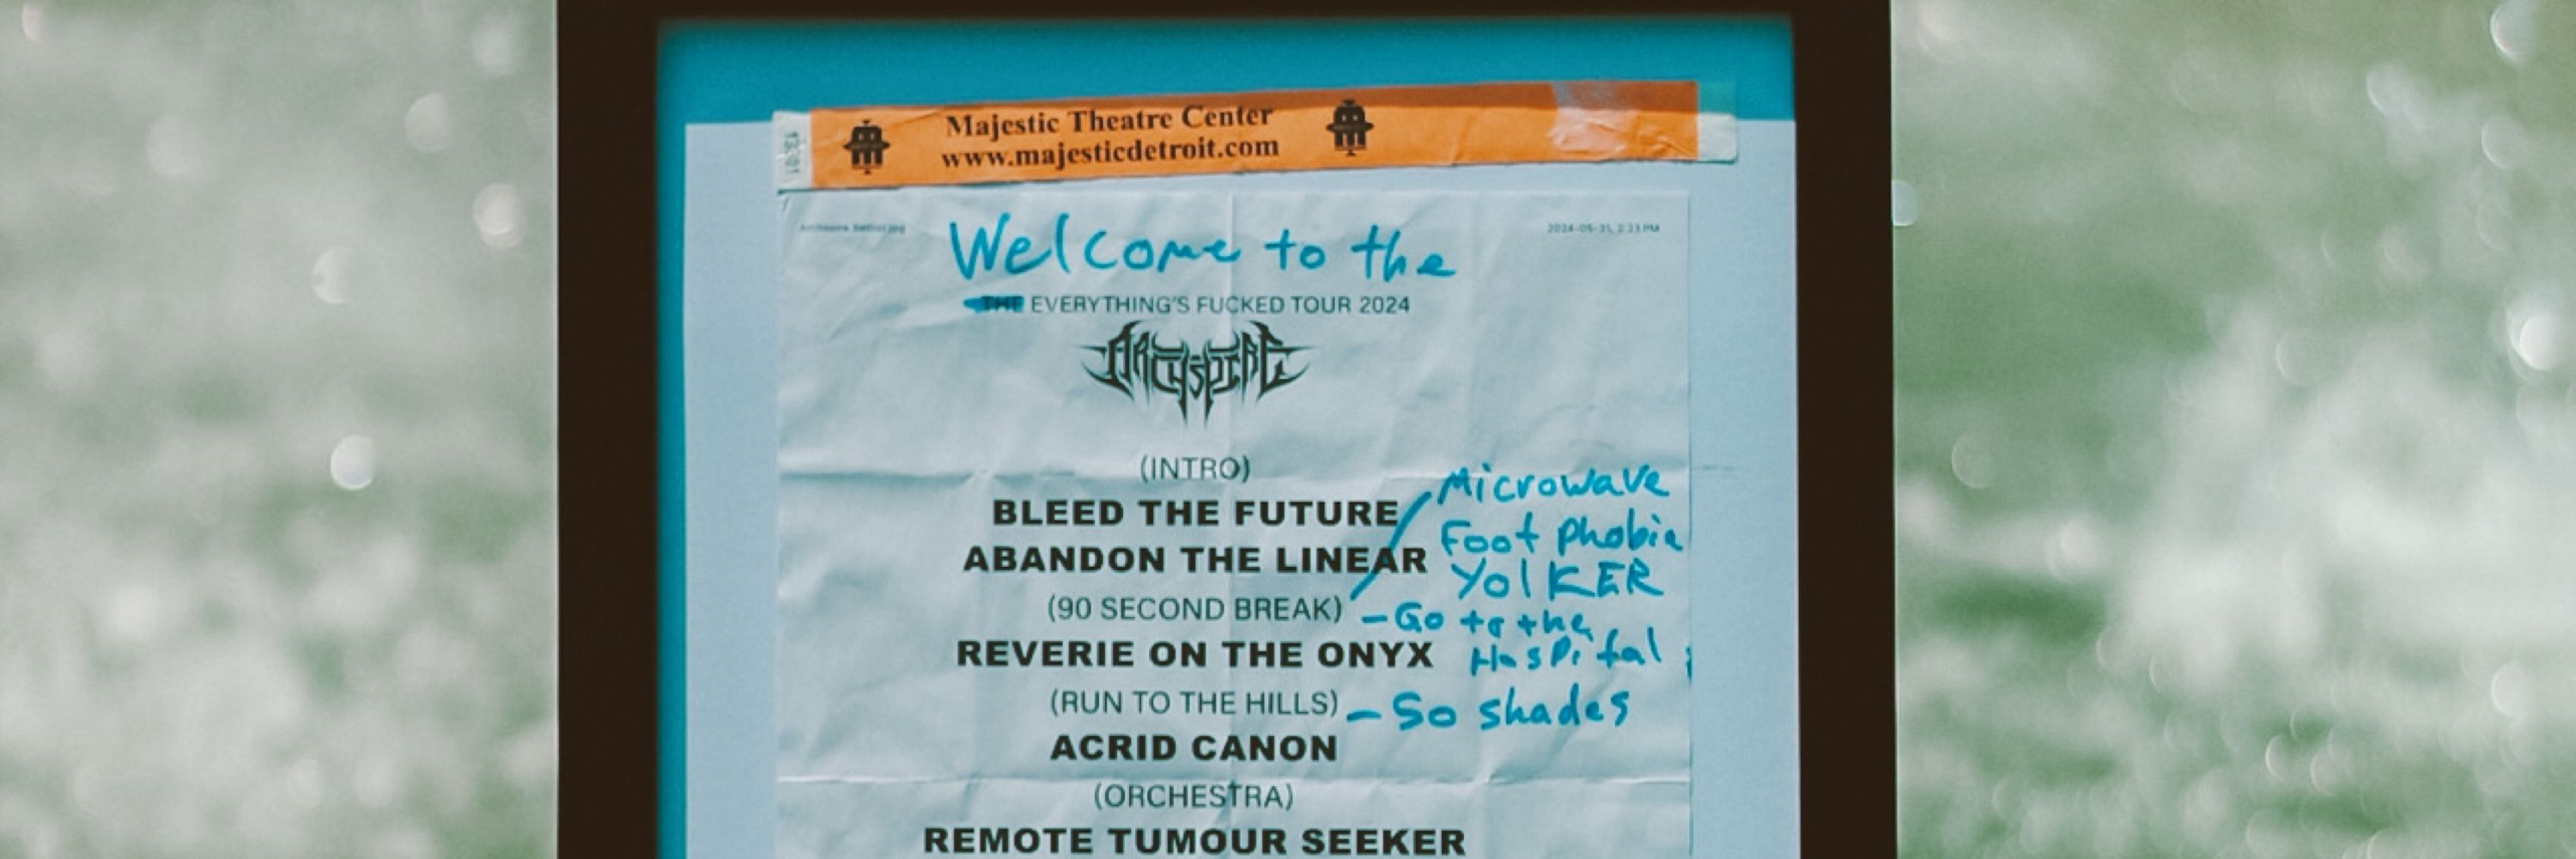 Majestic Theatre Center
www.majesticdetroit.com
Archspire Setlist.jpg
2024-05-31, 2:23 PM
Welcome to the
THE EVERYTHING'S FUCKED TOUR 2024
ARCHSPIRE
(INTRO)
BLEED THE FUTURE
Microwave
Foot Phobia
YOlKER
ABANDON THE LINEAR
(90 SECOND BREAK)
-Go to the
HosPital
REVERIE ON THE ONYX
(RUN TO THE HILLS)
-So shades
ACRID CANON
(ORCHESTRA)
REMOTE TUMOUR SEEKER